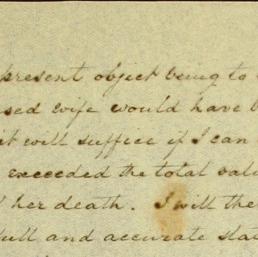 present object being to
sed wife would have b
it will suffice if I can
exceeded the total valu
her death. I will the
full and accurate stat